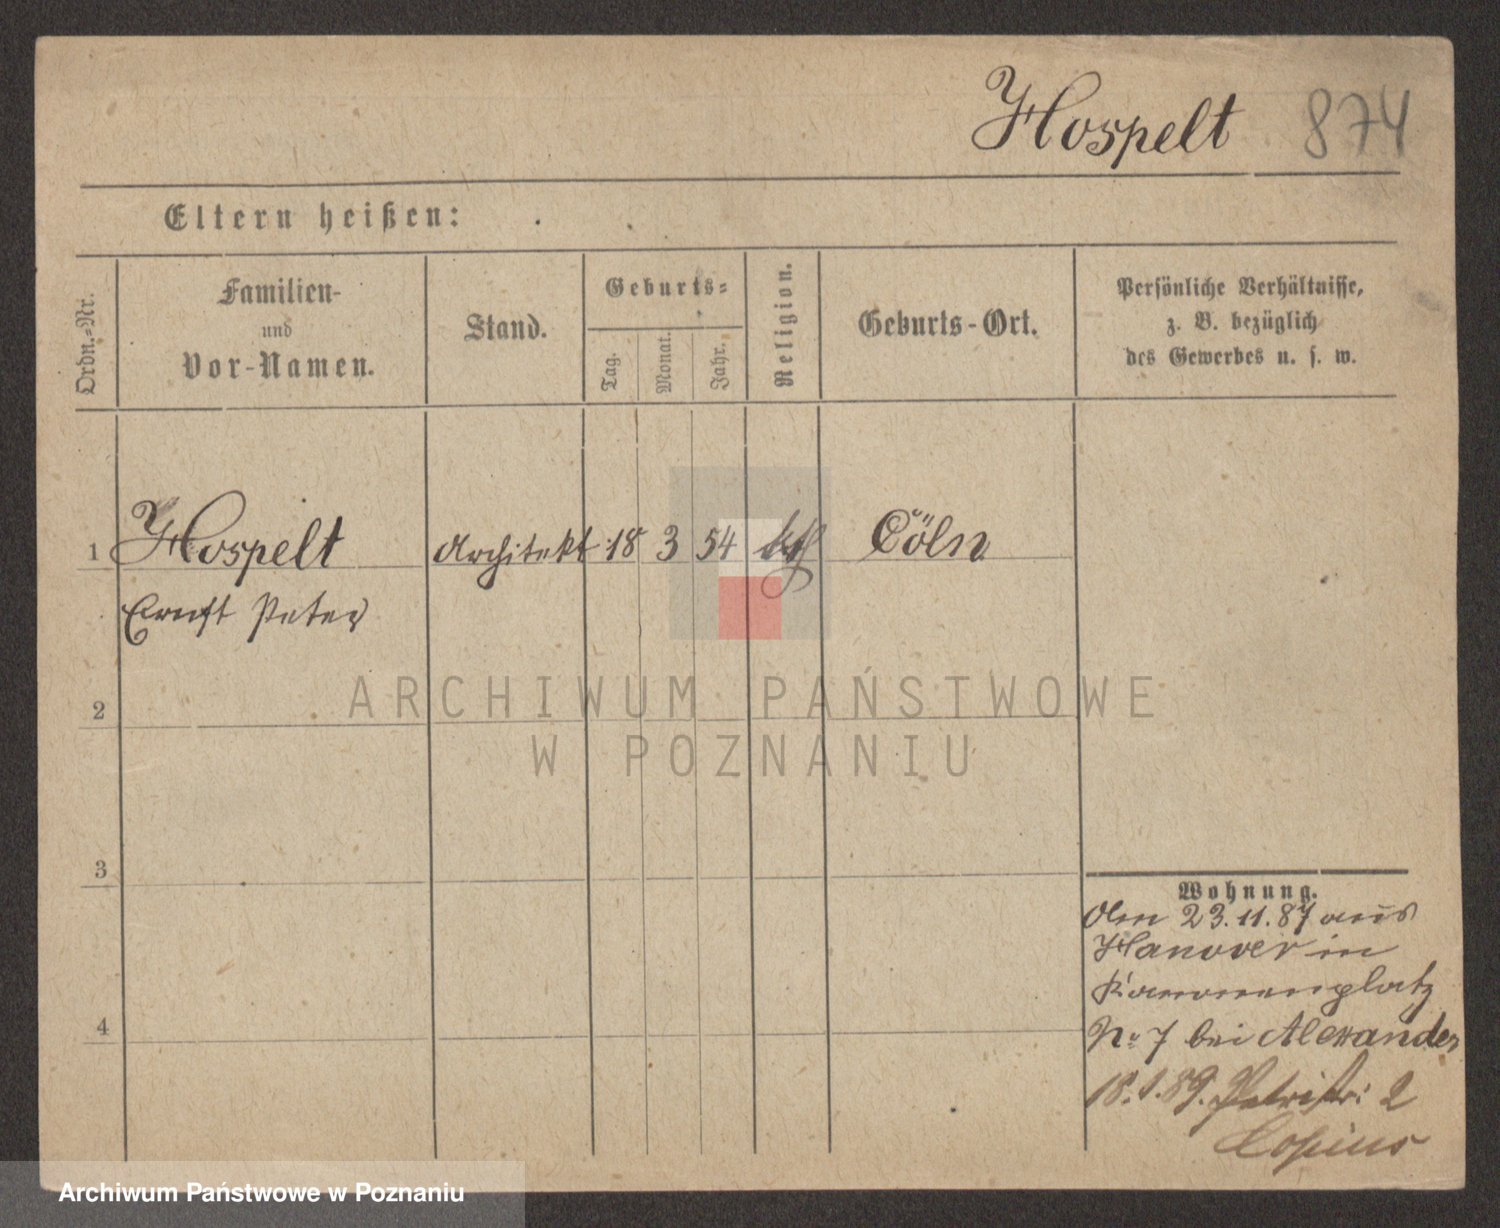 Hospelt 874
Eltern heißen:
Ordn.-Nr.
Familien-
und
Vor-Namen.
Stand.
Geburts-
Tag.
Monat.
Jahr.
Religion.
Geburts-Ort.
Persönliche Verhältnisse,
z. B. bezüglich
des Gewerbes u. s. w.
1 Hospelt Architekt 18 3 54 kth Cöln
Ernst Peter
2
ARCHIWUM PAŃSTWOWE
W POZNANIU
3
Wohnung.
Am 23.11.87 aus
Hanover in
Kanonenplatz
4
No 7 bei Alexander
18.1.89. Petristr: 2
Archiwum Państwowe w Poznaniu